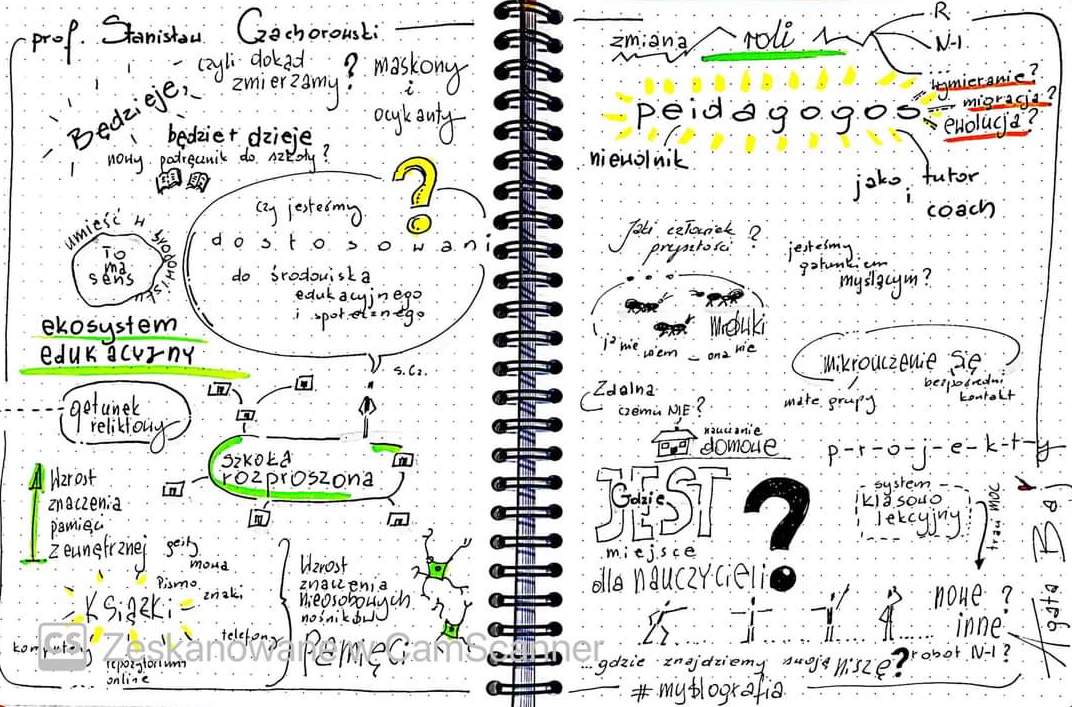 prof. Stanisław Czachorowski
Będzieje,
czyli dokąd
zmierzamy?
maskony
i
ocykanty
będzie + dzieje
nowy podręcznik do szkoły?
umieść w środowisku
To
ma
sens
czy jesteśmy
dostosowani
do środowiska
edukacyjnego
i społecznego
?
S.Cz.
ekosystem
edukacyjny
gatunek
reliktowy
szkoła
rozproszona
Wzrost
znaczenia
pamięci
zewnętrznej
gesty
mowa
Pismo
znaki
Książki
telefony
komputery
repozytorium
online
Wzrost
znaczenia
nieosobowych
nośników
Pamięci
CS Zeskanowane w CamScanner
zmiana roli
R.
N-l
peidagogos
wymieranie?
migracja?
ewolucja?
niewolnik
jako tutor
i
coach
Jaki człowiek
przyszłości?
jesteśmy
gatunkiem
myślącym?
Mrówki
ja nie wiem – one nie
mikrouczenie się
małe grupy
bezpośredni
kontakt
Zdalna
czemu NIE?
nauczanie
domowe
p-r-o-j-e-k-t-y
Gdzie
JEST
miejsce
dla nauczycieli
?
system
klasowo
lekcyjny
nowe?
inne
robot N-l?
...gdzie znajdziemy swoją niszę?
#myślografia
Agata Ba